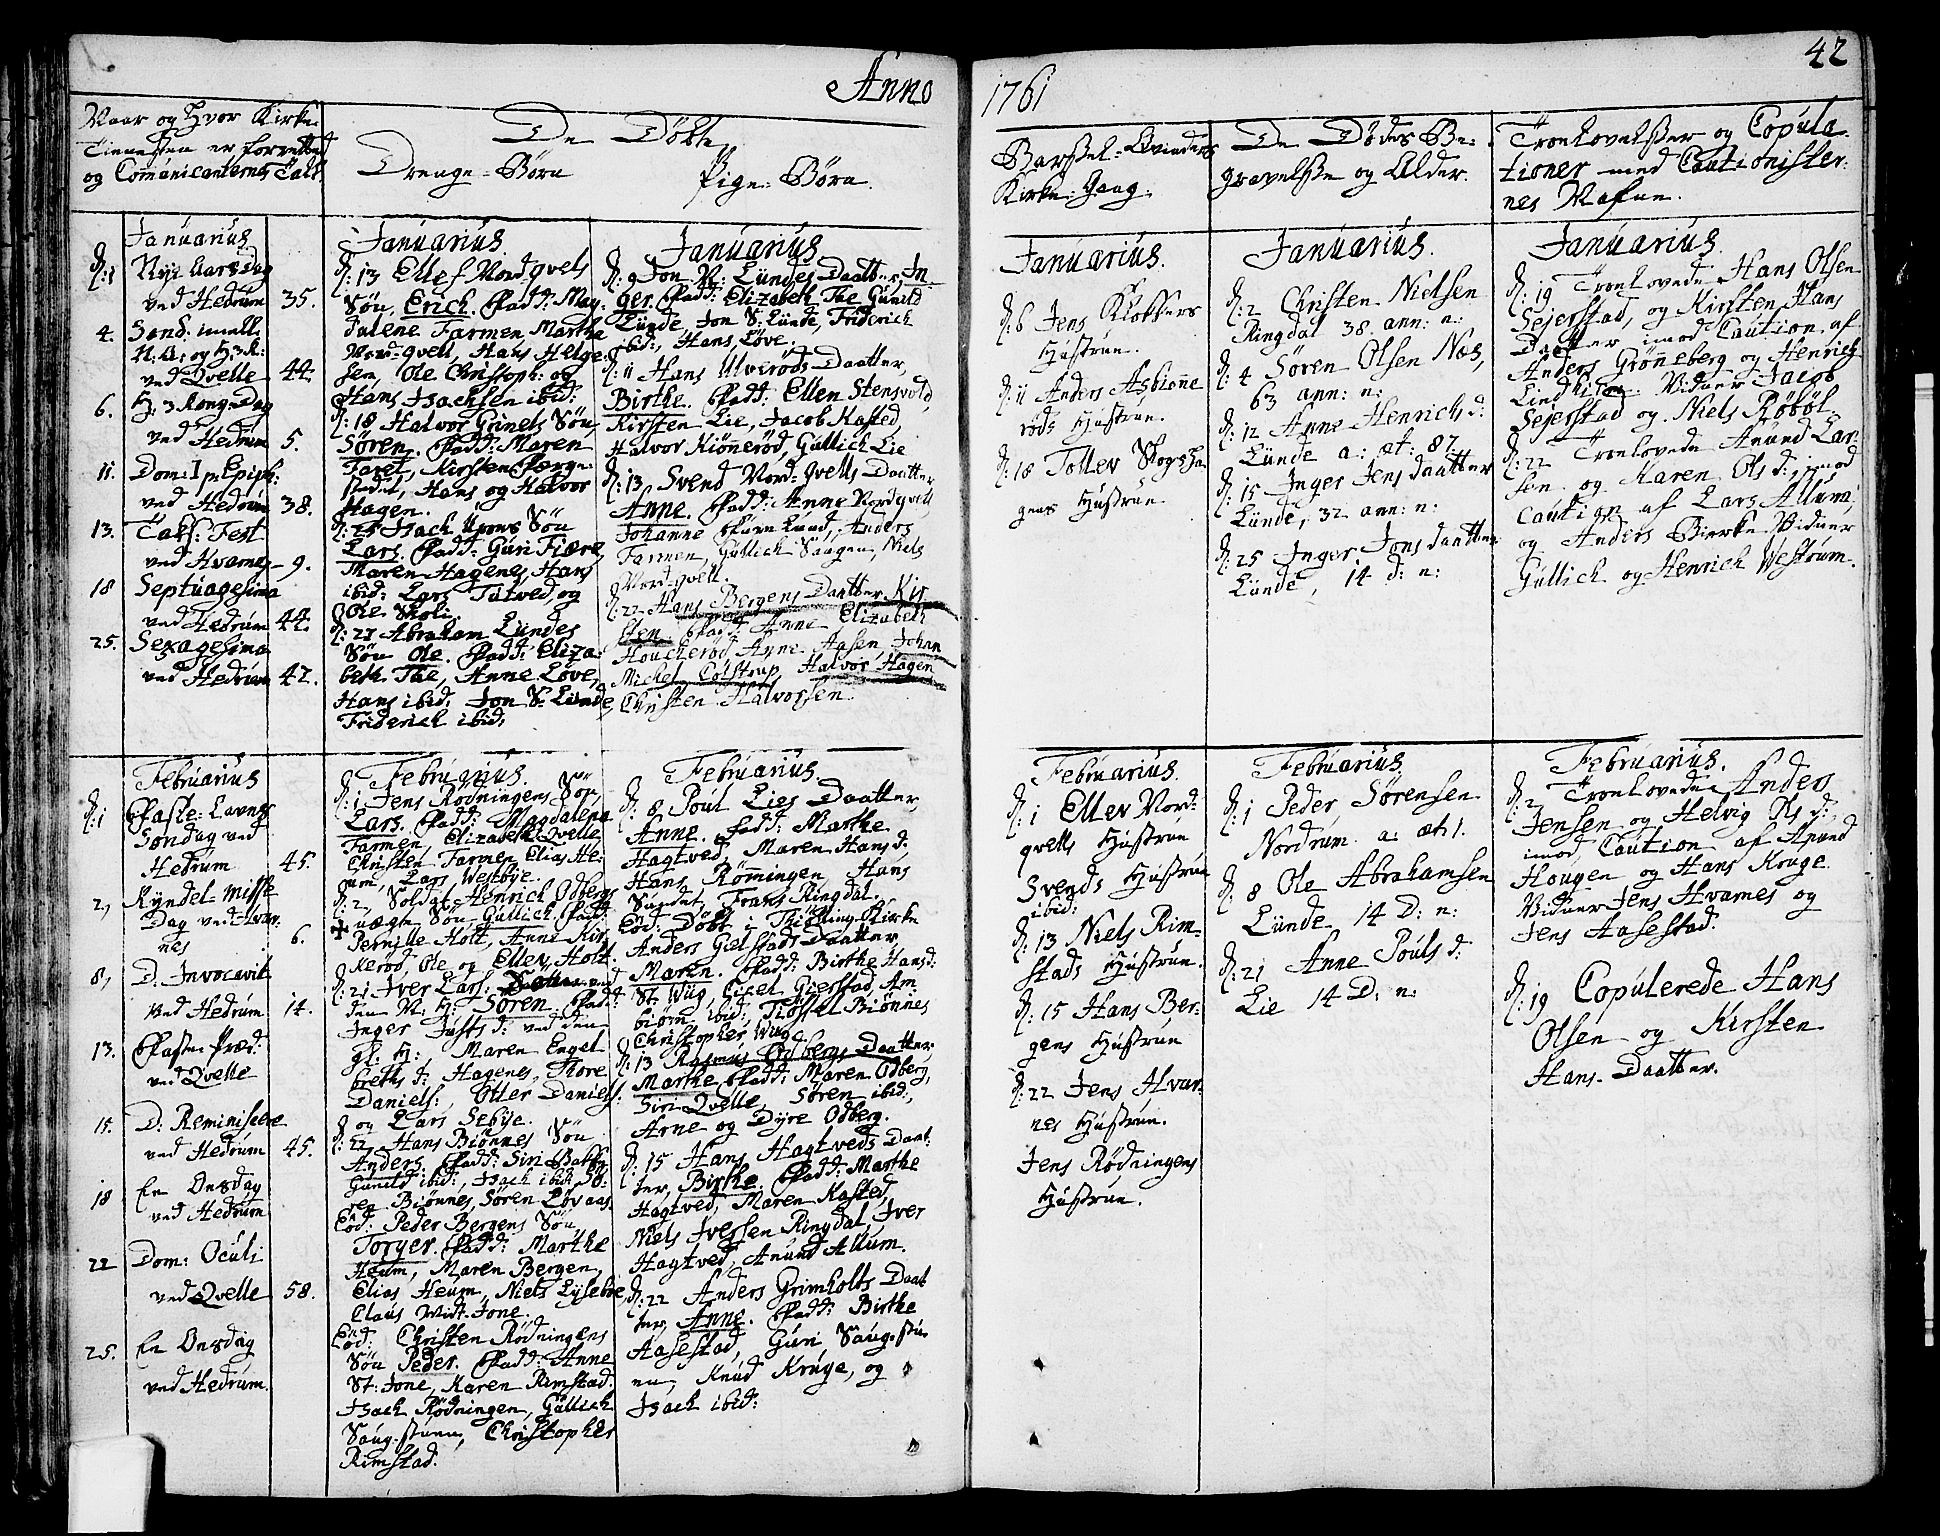 Anno
1761
42
Naar og Hvor Kirke
Tienesten er forrettet
og Comunicanternes Tall.
De Döbte
Drenge-Börn
Pige-Börn.
Barsel-Qvinders
Kirke-Gang.
De Dödes Be-
gravelse og Alder.
Trolovelser og Copula-
tioner med Cautionister-
nes Nafne.
Januarius
d: 1 Nyt Aarsdag
ved Hedrum 35.
4. Sönd. imell.
N. A: og H. 3 K:
ved Qvelle 44.
6. H. 3 Konge-Dag
ved Hedrum 5.
11. Dom: I p. Epiph:
ved Hedrum 38.
13. Tak: Fest
ved Hvarnes 9.
18 Septuagesima
ved Hedrum 44.
25. Sexagesima
ved Hedrum 42.
Januarius.
d: 13 Ellef Nordqvels
Sön, Erich. Fadd: Mag-
dalene Farmen, Marthe
Nord-qvell, Hans Helge-
sen, Ole Christoph: og
Hans Isachsen ibid:
d: 18 Halvor Grinets Sön,
Sören. Fadd: Maren
Taret, Kirsten
Hans og Halvor
Hagen.
d: 25 Isach Sön
Lars. Fadd: Guri Fiære,
Maren Hagenes, Hans
ibid: Lars Tutved, og
Ole Skoli.
d: 27 Abraham Lundes
Sön Ole. Fadd: Eliza-
beth Thc, Anne Löve,
Hans ibid: Jon S. Lunde,
Friderich ibid:
Januarius
d: 9 Jon N: Lundes Daatter, In-
ger. Fadd: Elizabeth Thc, Gunild
Lunde, Jon S: Lunde, Friderich
ibid:, Hans Löve.
d: 11 Hans Ulveröds Daatter,
Birthe. Fadd: Ellen Stensvold,
Kirsten Lie, Jacob Kasted,
Halvor Kiönneröd, Gullich Lie
d: 13 Svend Nord-qvells Daatter
Anne. Fadd: Anne Nordqvell
Johanne Lund, Anders
Farmen, Gullich Haugen, Niels
Nord-qvell.
d: 22 Hans Bergens Daatter Kir-
sten. Fadd: Anne Elizabeth
Houckeröd Anne Aasen, Johan
Michel Colstrup, Halvor Hagen
Christen Halvorsen.
Januarius.
d: 6 Jens Klokkers
Hustrue.
d: 11 Anders Asbiönne-
röds Hustrue.
d: 18 Tollev Skogsha-
gens Hustrue.
Januarius.
d: 2 Christen Nielsen
Ringdal 38 ann: n:
d: 4 Sören Olsen Næs,
63 ann: n:
d: 12 Anne Henrichsd:
Lunde a: æt: 87.
d: 15 Inger Jensdaatter
Lunde, 32 ann: n:
d: 25 Inger Jonsdaatter
Lunde, 14 d: n:
Januarius
d: 19 Trolovede Hans Olsen
Sejerstad, og Kirsten Hans
Daatter imod Caution af
Anders Grönneberg og Henrich
Lind Vidner Jacob
Sejerstad og Niels Röböl.
d: 22 Trolovede Anund Lar-
sen og Karen Olsd: imod
Caution af Lars Allum,
og Anders Bierke. Vidner
Gullich og Henrich Westrum.
Februarius
d: 1 Faste-Lavns
Söndag ved
Hedrum 45.
2, Kyndel-Misse
Dag ved Hvar-
nes 6.
8, D. Invocavit
ved Hedrum 14.
13. Faste-Præd:
ved Qvelle
15. D: Reminiscere
ved Hedrum 45.
18 En Onsdag
ved Hedrum
22 Dom: Oculi
ved Qvelle 58.
25. En Onsdag
ved Hedrum.
Februarius.
d: 1 Jens Rödningens Sön
Lars. Fadd: Magdalena
Farmen, Elizabeth Qvelle
Christen Farmen Elias He-
um, Lars Westbye.
d: 2, Soldat Henrich Odbergs
uægte Sön Gullich. Fadd:
Pernille Holt, Anne Kir-
keröd, Ole og Ellev Holt.
d: 21 Iver Lars: ved
den N. H: Sören. Fadd:
Inger Justsd: ved den
gl: H:, Maren Engel-
brethsd: Hagenes, Thore
Daniels:, Otter Daniels:
og Lars Sebye.
d: 22 Hans Biönnes Sön
Anders. Fadd: Siri Bakke
Gunild ibid:, Isach ibid: Sö-
ren Biönnes, Sören Lövaas,
Eod: Peder Bergens Sön
Torger. Fadd: Marthe
Heum, Maren Bergen,
Elias Heum, Niels Lyseboe,
Claus Wids-Jone.
Eod: Christen Rödningens
Sön Peder. Fadd: Anne
St: Jone, Karen Rimstad.
Isach Rödningen, Gullich
Haug-stuen, Christopher
Rimstad.
Februarius.
d: 8 Poul Lies Daatter
Anne. Fadd: Marthe
Hagtved, Maren Hansd:
Hans Römmingen, Hans
Sundet, Frans Ringdal.
Eod: Döbt i Thiölling Kirke
Anders Gielstads Daatter
Maren. Fadd: Birthe Hansd:
St. Wüg, Cicel Gierstad, Am-
biörn ibid: Tiöstel Biönnes
Christopher Wüg.
d: 13 Rasmus Odbergs Daatter
Marthe. Fadd: Maren Odberg,
Siri Qvelle, Sören ibid:,
Arne og Dyre Odberg.
d: 15 Hans Hagtveds Daat-
ter, Birthe. Fadd: Marthe
Hagtved, Maren Kasted,
Niels Iversen Ringdal, Iver
Hagtved, Anund Allum.
d: 22 Anders Grimholts Daat
ter, Anne. Fadd: Birthe
Aasestad, Guri Haug-stu-
en, Knud Kruge, og
Isach ibid:
Februarius.
d: 1 Ellev Nord-
qvells Hustrue
Svends Hustrue
ibid:
d: 13 Niels Rim-
stads Hustrue.
d: 15 Hans Ber-
gens Hustrue
d: 22 Jens Hvar-
nes Hustrue.
Jens Rödningens
Hustrue.
Februarius
d: 1 Peder Sörensen
Nordrum a: æt 1.
d: 8 Ole Abrahamsen
Lunde 14 D: n:
d: 21 Anne Poulsd:
Lie 14 D: n:
Februarius.
d: 2 Trolovede Anders
Jensen og Helvig Olsd:,
imod Caution af Anund
Hougen og Hans Kruge.
Vidner Jens Hvarnes og
Jens Aasestad.
d: 19 Copulerede Hans
Olsen og Kirsten
Hans-Daatter.